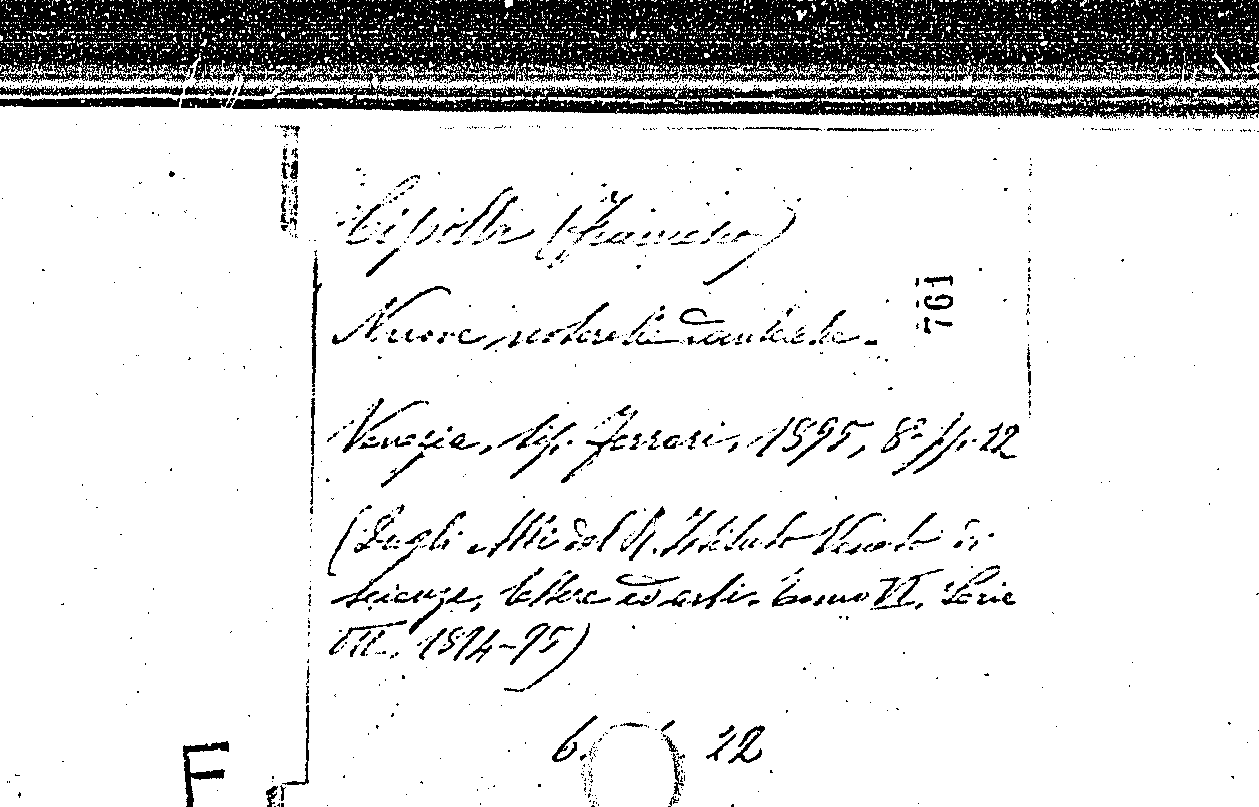 Cipolla (Francesco)
Nuove noterelle dantesche.
761
Venezia, tip. Ferrari, 1895, 8º pp. 22
(Dagli Atti del R. Istituto Veneto di
scienze, lettere ed arti. Tomo VI. Serie
VII. 1894-95)
6. 22
F